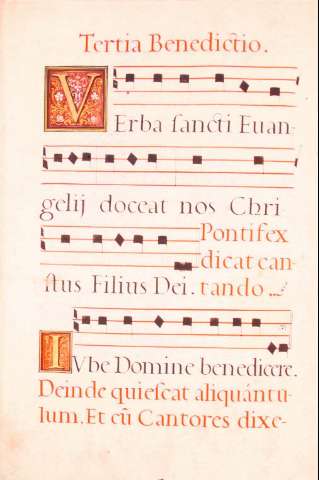 Tertia Benedictio.
VErba sancti Euan-
gelij doceat nos Chri
Pontifex
dicat can-
stus Filius Dei. tando
IVbe Domine benedicere.
Deinde quiescat aliquántu-
lum. Et cũ Cantores dixe-